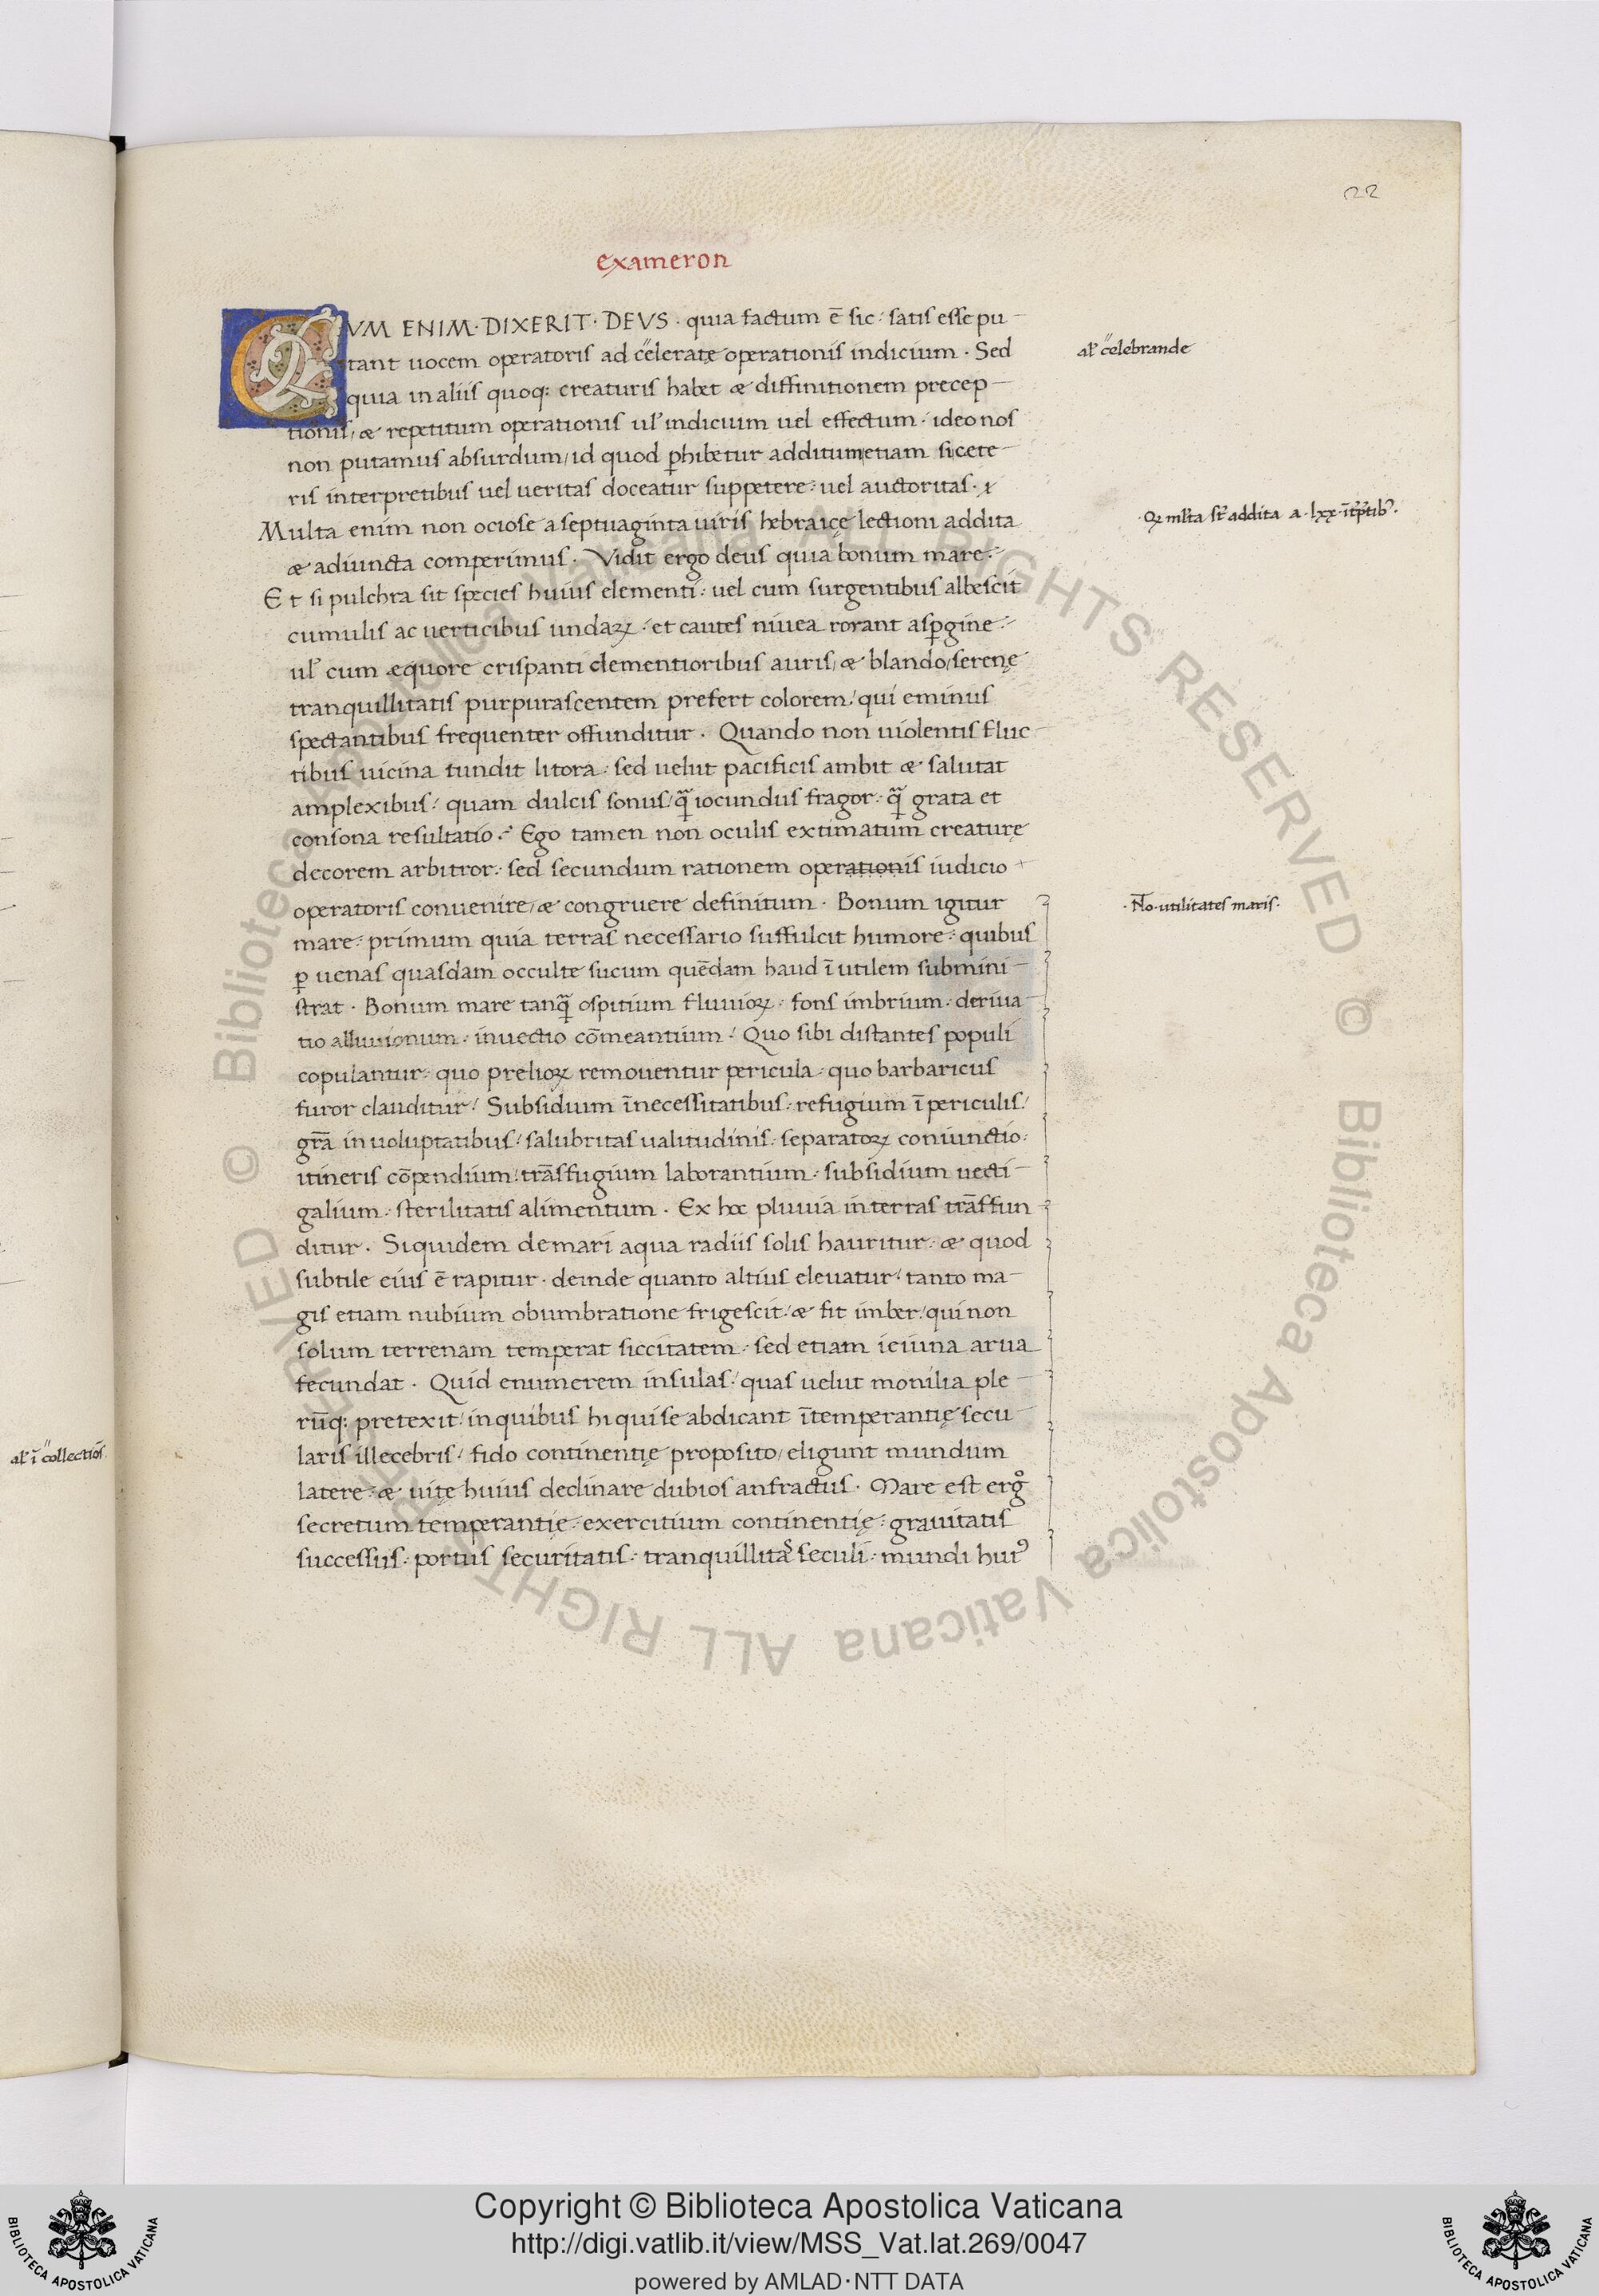 22
exameron
CVM ENIM·DIXERIT·DEVS · quia factum ē sic: satis esse pu-
tant uocem operatoris ad celeratę operationis indicium · Sed
al' celebrande
quia in aliis quoq: creaturis habet æ diffinitionem precep-
tionis, æ repetitum operationis ul' indicium uel effectum · ideo nos
non putamus absurdum, id quod ꝑhibetur additum etiam si cete-
ris interpretibus uel ueritas doceatur suppetere: uel auctoritas ·
·Qꝫ ml'ta st' addita a·lxx·īterptib'·
Multa enim non ociose a septuaginta uiris hebraicę lectioni addita
æ adiuncta comperimus · Vidit ergo deus quia bonum mare:
Et si pulchra sit species huius elementi: uel cum surgentibus albescit
cumulis ac uerticibus undaꝝ: et cautes niuea rorant asꝑgine:
ul' cum æquore crispanti clementioribus auris, æ blando, serenę
tranquillitatis purpurascentem prefert colorem: qui eminus
spectantibus frequenter offunditur · Quando non uiolentis fluc-
tibus uicina tundit litora: sed uelut pacificis ambit æ salutat
amplexibus: quam dulcis sonus: q̄ iocundus fragor: q̄ grata et
consona resultatio: Ego tamen non oculis extimatum creaturę
decorem arbitror: sed secundum rationem operationis iudicio
operatoris conuenire, æ congruere definitum · Bonum igitur
·No·utilitates maris·
mare: primum quia terras necessario suffulcit humore: quibus
ꝑ uenas quasdam occulte sucum quēdam haud īutilem submini-
strat · Bonum mare tanq̄ ospitium fluuioꝝ: fons imbrium: deriua-
tio alluuionum: inuectio cōmeantium: Quo sibi distantes populi
copulantur: quo prelioꝝ remouentur pericula: quo barbaricus
furor clauditur: Subsidium ī necessitatibus: refugium ī periculis:
grā in uoluptatibus: salubritas ualitudinis: separatoꝝ coniunctio:
itineris cōpendium: trāsfugium laborantium: subsidium uecti-
galium: sterilitatis alimentum · Ex hoc pluuia in terras trāsfun-
ditur · Siquidem de mari aqua radiis solis hauritur: æ quod
subtile eius ē rapitur · deinde quanto altius eleuatur: tanto ma-
gis etiam nubium obumbratione frigescit: æ fit imber: qui non
solum terrenam temperat siccitatem: sed etiam ieiuna arua
fecundat · Quid enumerem insulas: quas uelut monilia ple-
rūq: pretexit: in quibus hi qui se abdicant ītemperantię secu-
laris illecebris: fido continentię proposito, eligunt mundum
al' ī collectiōs
latere: æ uitę huius declinare dubios anfractus · Mare est ergo
secretum temperantię: exercitium continentię: grauitatis
successus: portus securitatis: tranquillitas seculi: mundi hui'
© Biblioteca Apostolica Vaticana ALL RIGHTS RESERVED © Biblioteca Apostolica Vaticana ALL RIGHTS RESERVED
BIBLIOTECA APOSTOLICA VATICANA
Copyright © Biblioteca Apostolica Vaticana
http://digi.vatlib.it/view/MSS_Vat.lat.269/0047
powered by AMLAD·NTT DATA
BIBLIOTECA APOSTOLICA VATICANA